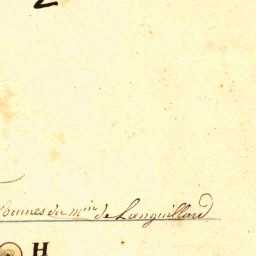 2
du m.in de Languillard
H